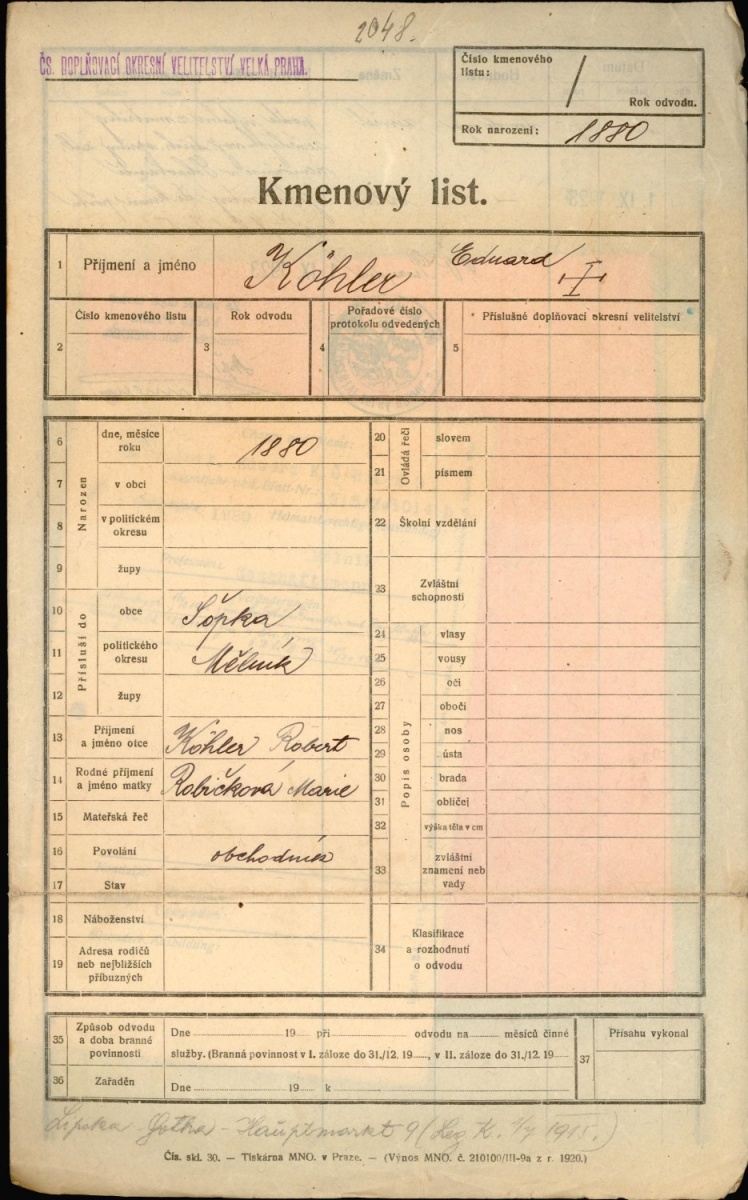 2048.
ČS. DOPLŇOVACÍ OKRESNÍ VELITELSTVÍ VELKÁ PRAHA.
Číslo kmenového
listu:
/
Rok odvodu.
Rok narození: 1880
Kmenový list.
1 Příjmení a jméno Köhler Eduard
Číslo kmenového listu
2
Rok odvodu
3
Pořadové číslo
protokolu odvedených
4
Příslušné doplňovací okresní velitelství
5
Narozen
6 dne, měsíce
roku 1880
7 v obci
8 v politickém
okresu
9 župy
Přísluší do
10 obce Šopka
11 politického
okresu Mělník
12 župy
13 Příjmení
a jméno otce Köhler Robert
14 Rodné příjmení
a jméno matky Robičková Marie
15 Mateřská řeč
16 Povolání obchodník
17 Stav
18 Náboženství
19 Adresa rodičů
neb nejbližších
příbuzných
Ovládá řeči
20 slovem
21 písmem
22 Školní vzdělání
23 Zvláštní
schopnosti
Popis osoby
24 vlasy
25 vousy
26 oči
27 obočí
28 nos
29 ústa
30 brada
31 obličej
32 výška těla v cm
33 zvláštní
znamení neb
vady
34 Klasifikace
a rozhodnutí
o odvodu
35 Způsob odvodu
a doba branné
povinnosti
Dne 19 při odvodu na měsíců činné
služby. (Branná povinnost v I. záloze do 31./12. 19 , v II. záloze do 31./12. 19
36 Zařaděn
Dne 19 k
37 Přísahu vykonal
Lipska Gotha - Hauptmarkt 9 (Leg K. 1915.)
Čís. skl. 30. — Tiskárna MNO. v Praze. — (Výnos MNO. č. 210100/III-9a z r. 1920.)